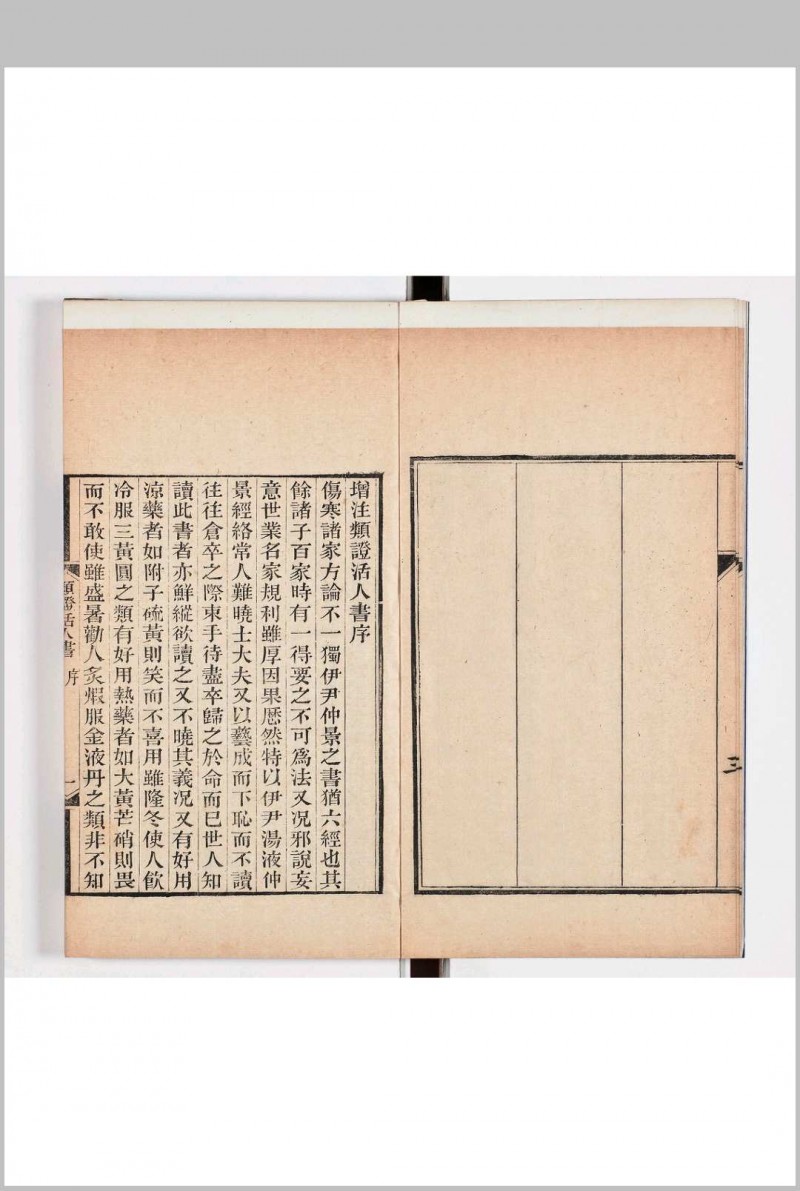 三
增注類證活人書序
傷寒諸家方論不一獨伊尹仲景之書猶六經也其
餘諸子百家時有一得要之不可爲法又况邪說妄
意世業名家規利雖厚因果歷然特以伊尹湯液仲
景經絡常人難曉士大夫又以藝成而下恥而不讀
往往倉卒之際束手待盡卒歸之於命而已世人知
讀此書者亦鮮縱欲讀之又不曉其義况又有好用
涼藥者如附子硫黃則笑而不喜用雖隆冬使人飮
冷服三黃圓之類有好用熱藥者如大黃芒硝則畏
而不敢使雖盛暑勸人炙煆服金液丹之類非不知
類證活人書 序 一